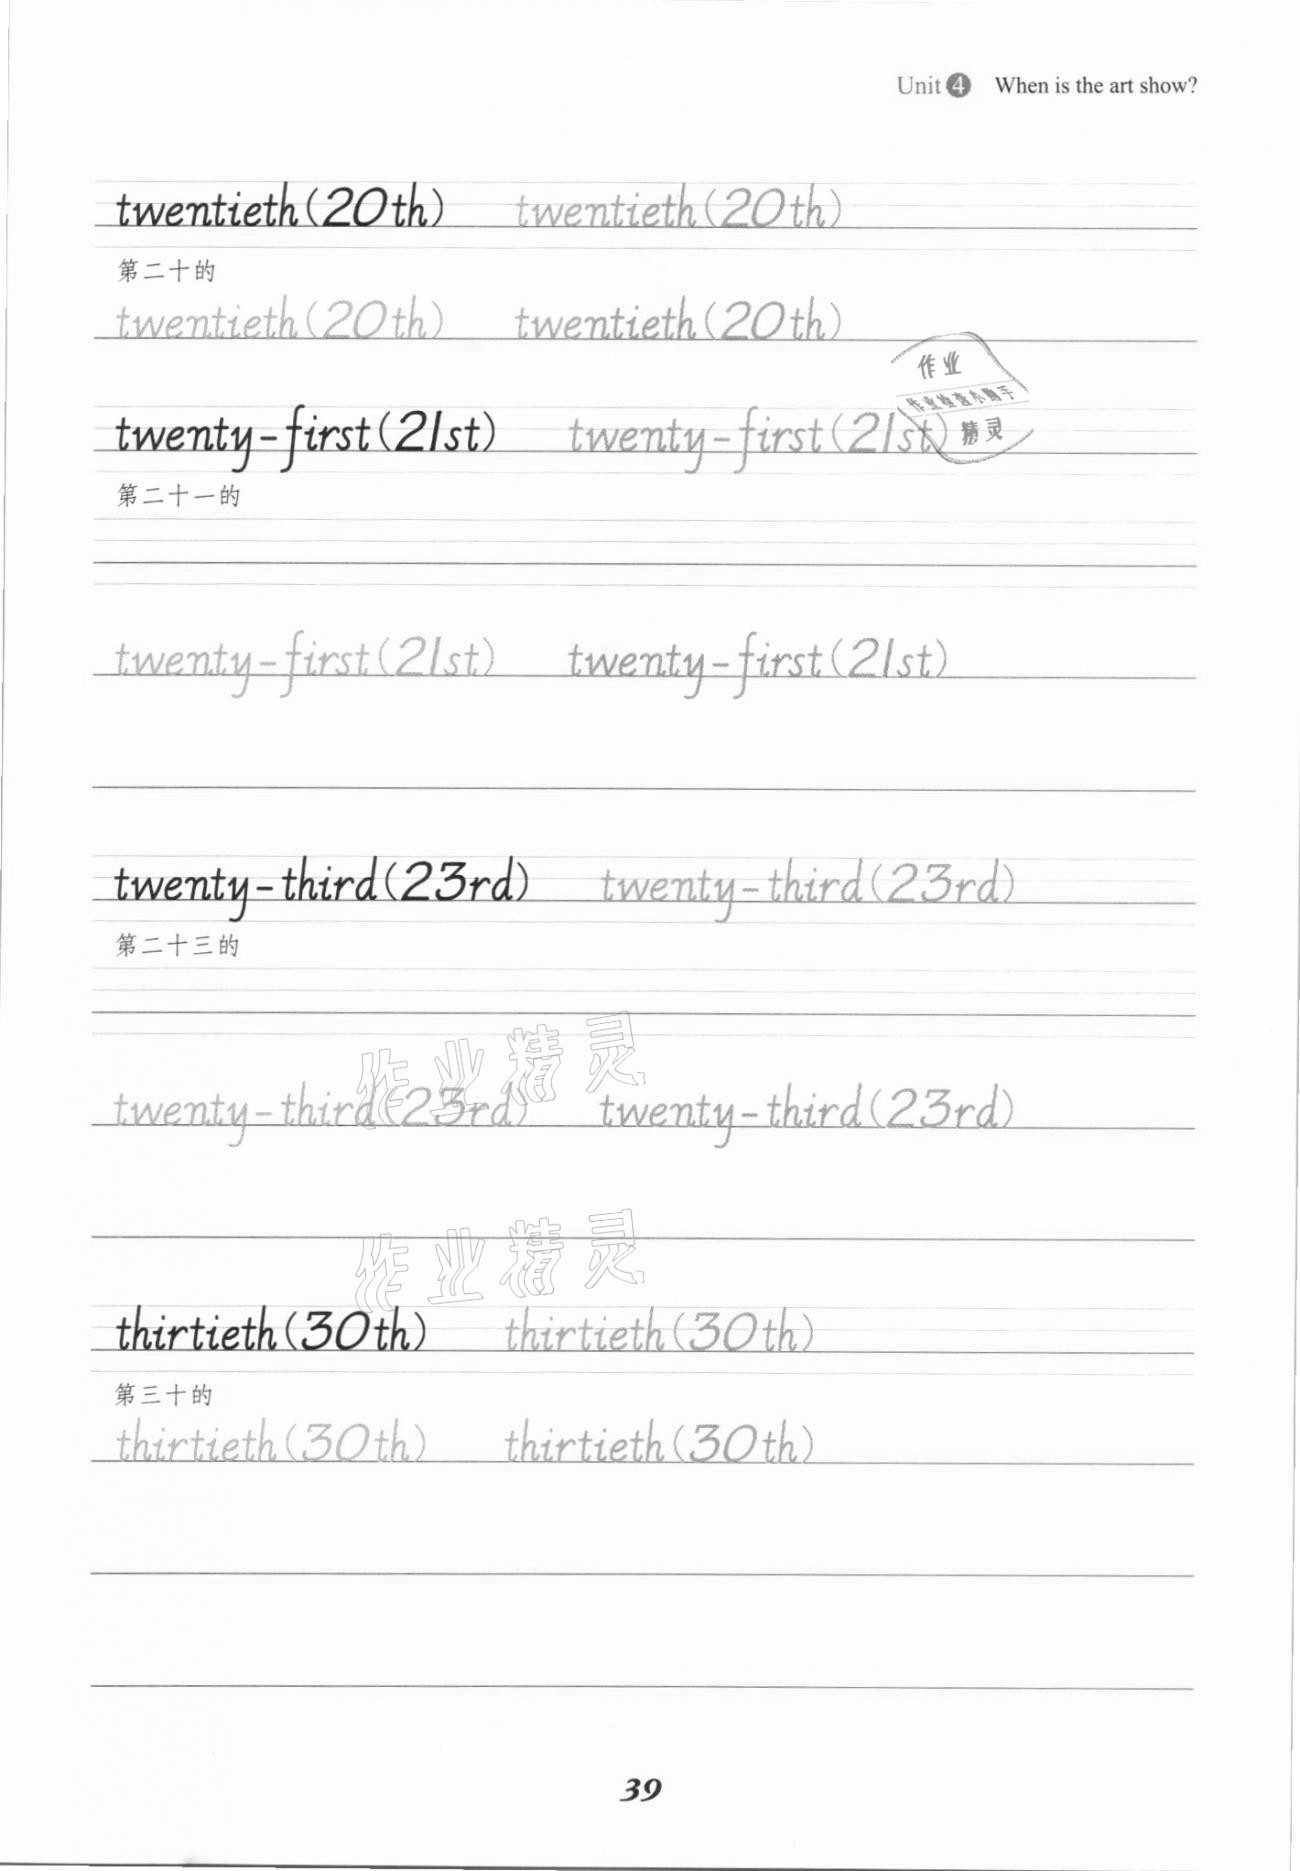 Unit 4 When is the art show?
twentieth(20th) twentieth(20th)
第二十的
twentieth(20th) twentieth(20th)
作业
作业检查小助手
精灵
twenty-first(21st) twenty-first(21st)
第二十一的
twenty-first(21st) twenty-first(21st)
twenty-third(23rd) twenty-third(23rd)
第二十三的
作业精灵
twenty-third(23rd) twenty-third(23rd)
作业精灵
thirtieth(30th) thirtieth(30th)
第三十的
thirtieth(30th) thirtieth(30th)
39